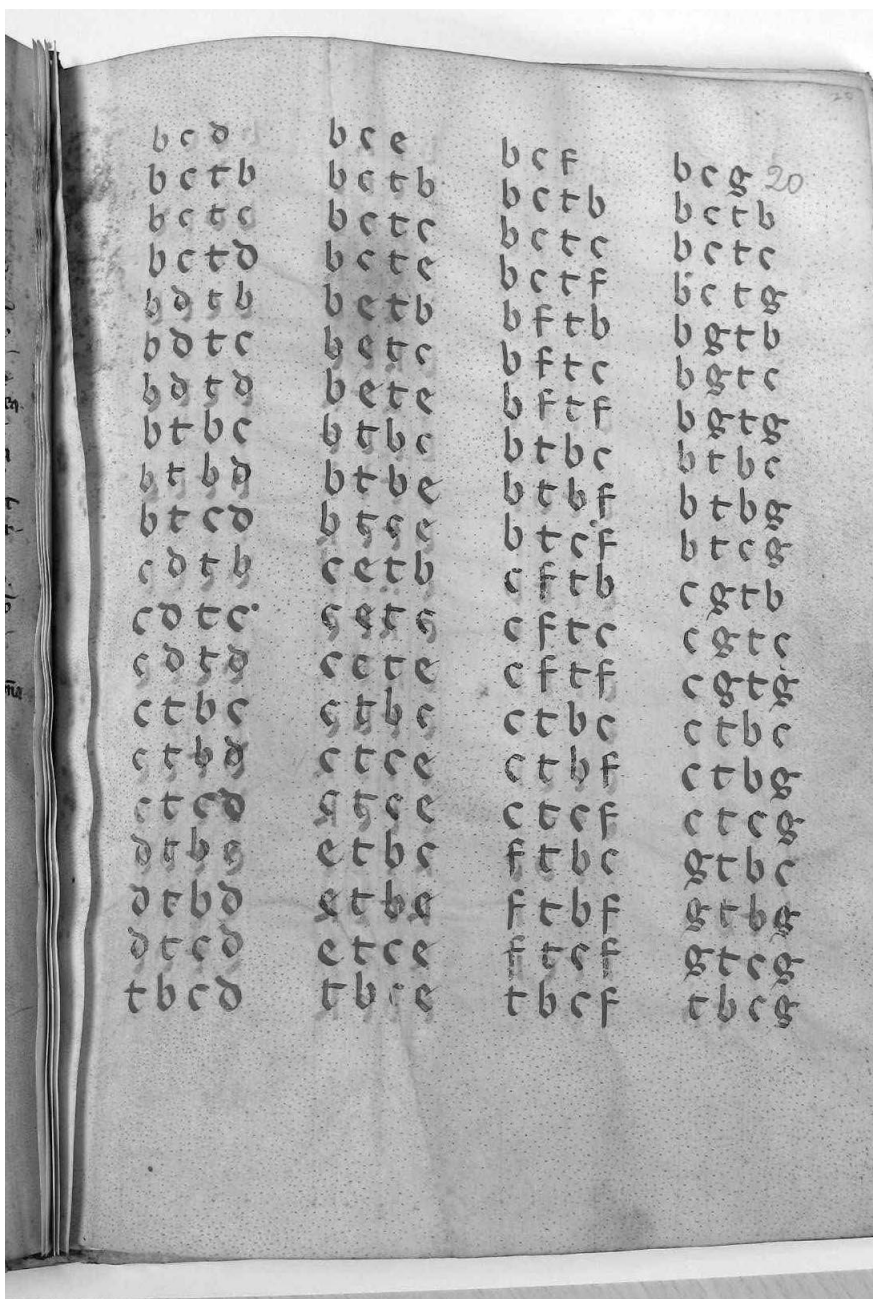 20
b c d
b c t b
b c t c
b c t d
b d t b
b d t c
b d t d
b t b c
b t b d
b t c d
c d t b
c d t c
c d t d
c t b c
c t b d
c t c d
d t b c
d t b d
d t c d
t b c d
b c e
b c t b
b c t c
b c t e
b e t b
b e t c
b e t e
b t b c
b t b e
b t c e
c e t b
c e t c
c e t e
c t b c
c t c e
c t c e
e t b c
e t b e
e t c e
t b c e
b c f
b c t b
b c t c
b c t f
b f t b
b f t c
b f t f
b t b c
b t b f
b t c f
c f t b
c f t c
c f t f
c t b c
c t b f
c t c f
f t b c
f t b f
f t c f
t b c f
b c g
b c t b
b c t c
b c t g
b g t b
b g t c
b g t g
b t b c
b t b g
b t c g
c g t b
c g t c
c g t g
c t b c
c t b g
c t c g
g t b c
g t b g
g t c g
t b c g